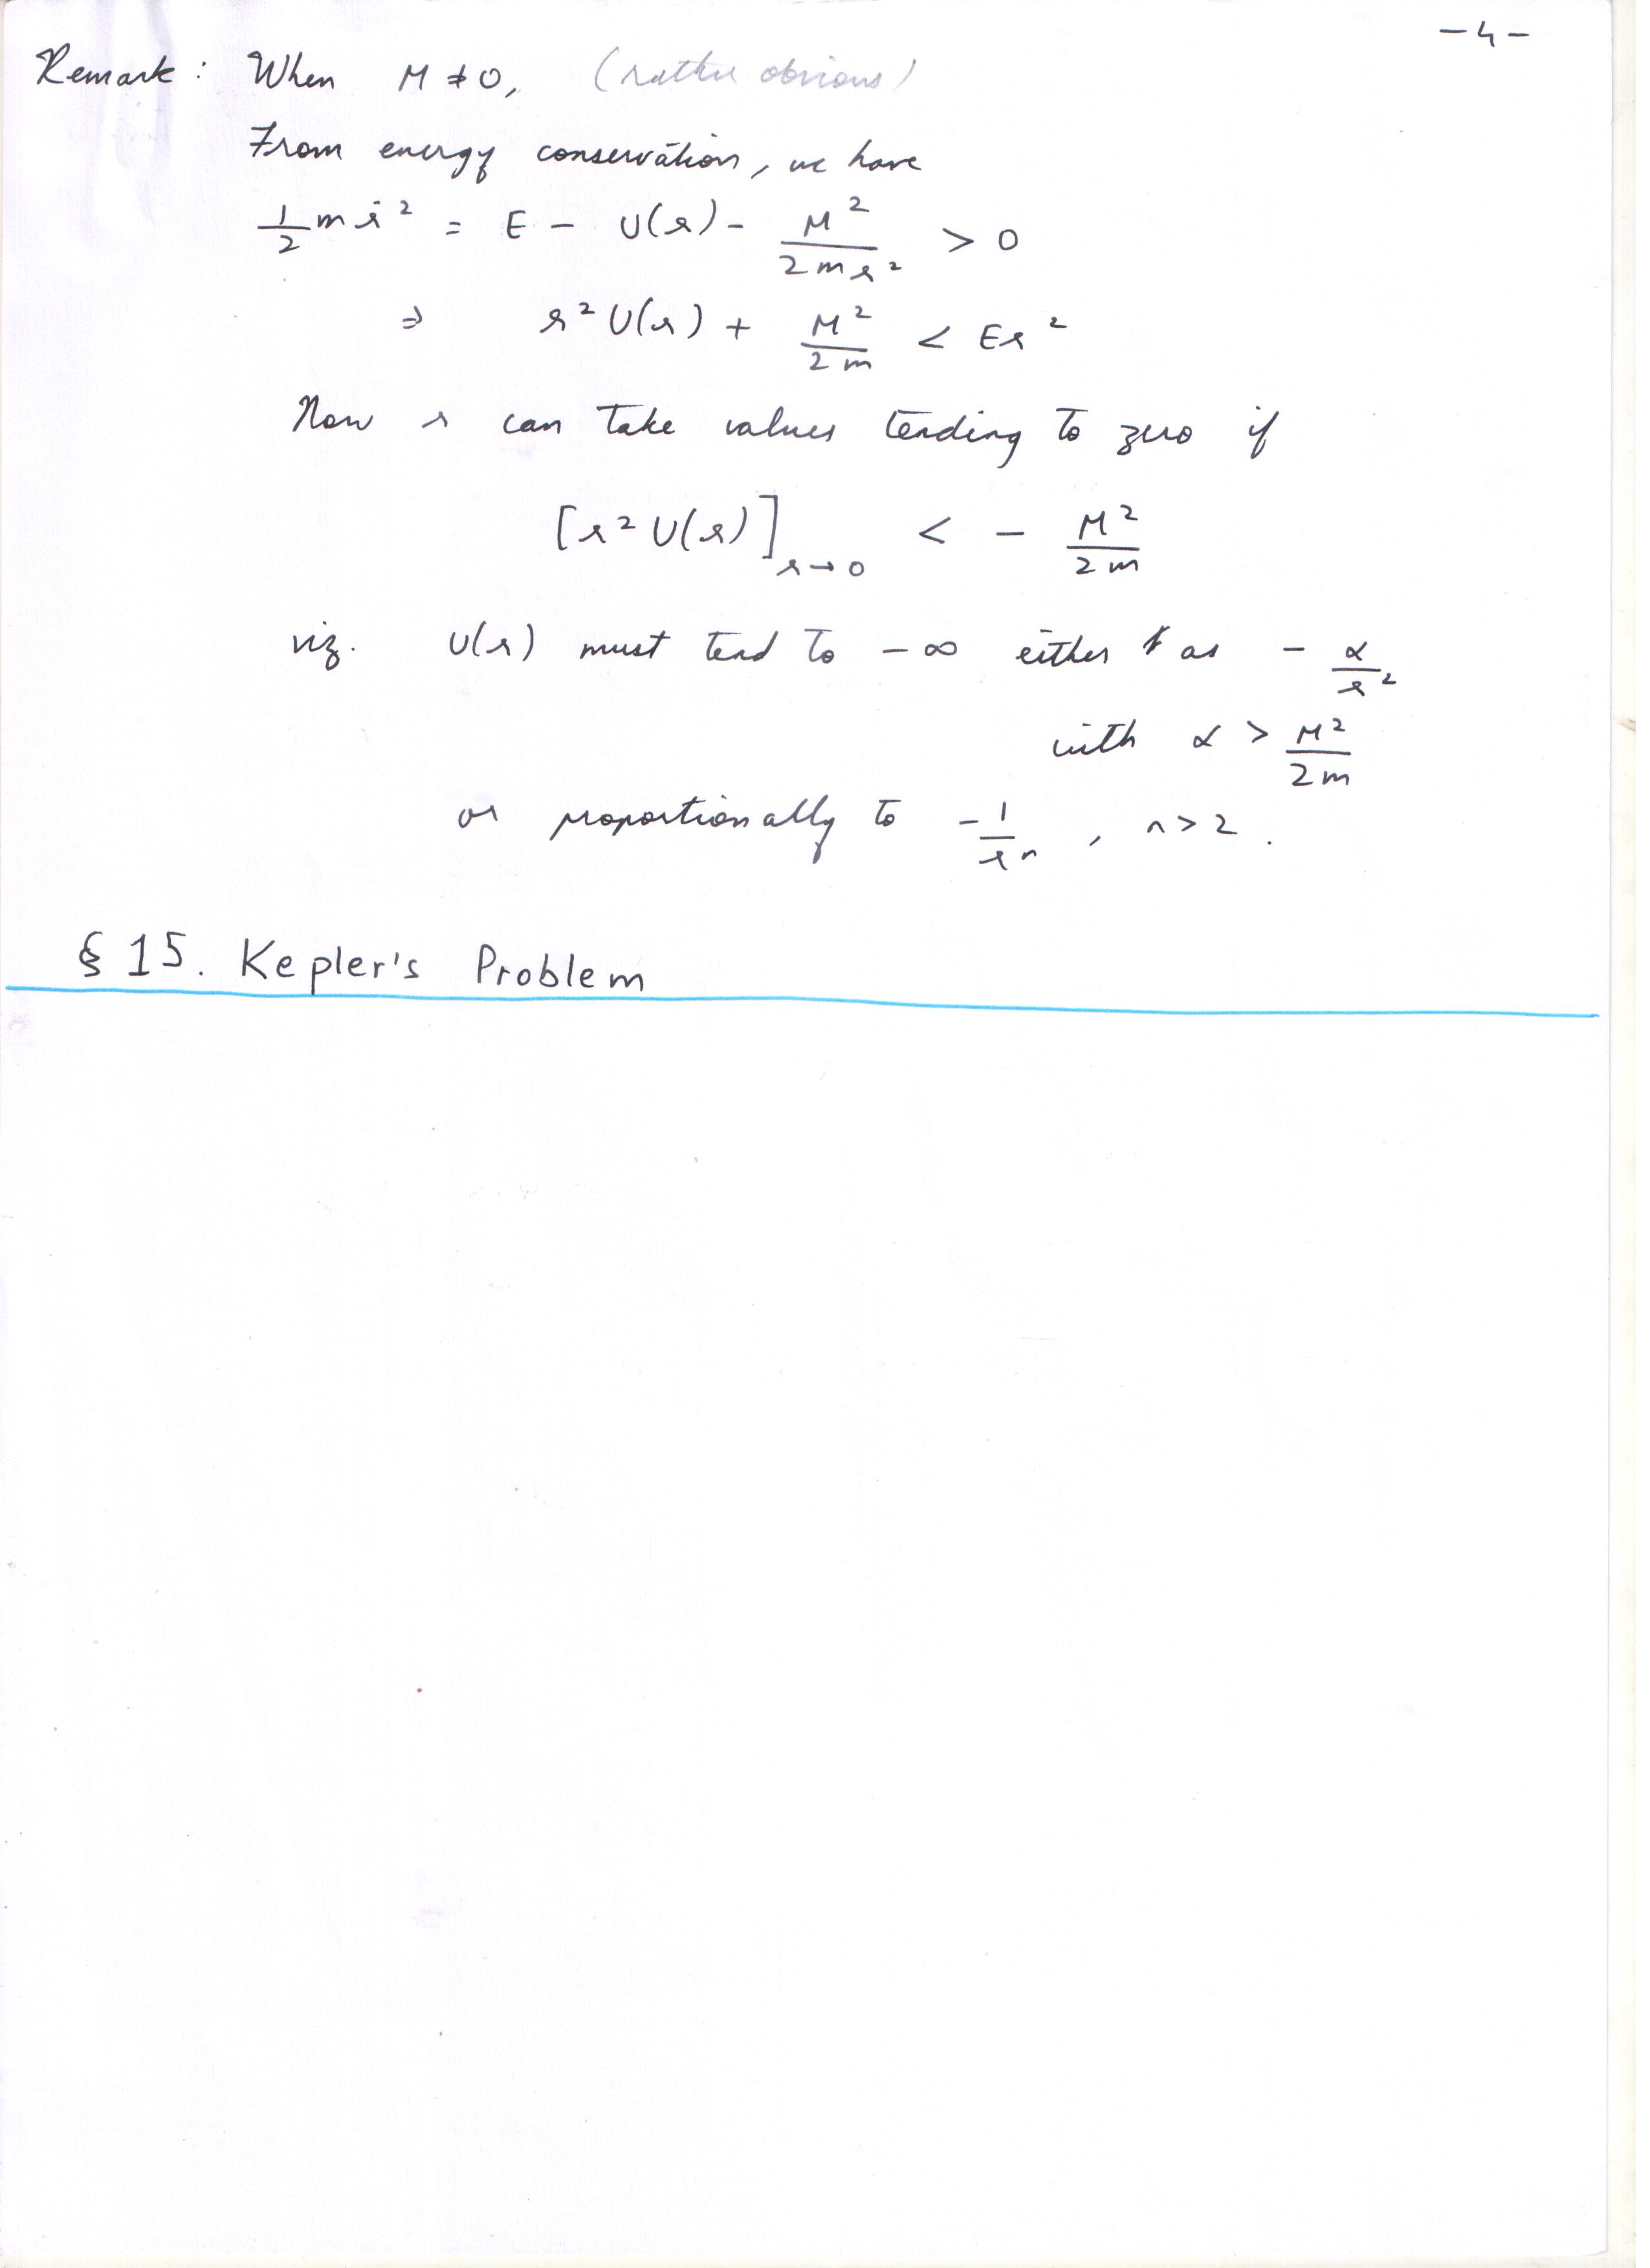 - 4 -
Remark : When M ≠ 0, (rather obvious)
From energy conservation, we have
½ m ṙ² = E - U(r) - M²/2mr² > 0
⇒ r² U(r) + M²/2m < Er²
Now r can take values tending to zero if
[r² U(r)]r→0 < - M²/2m
viz. U(r) must tend to - ∞ either as - α/r²
with α > M²/2m
or proportionally to - 1/rⁿ , n > 2 .
§ 15. Kepler's Problem